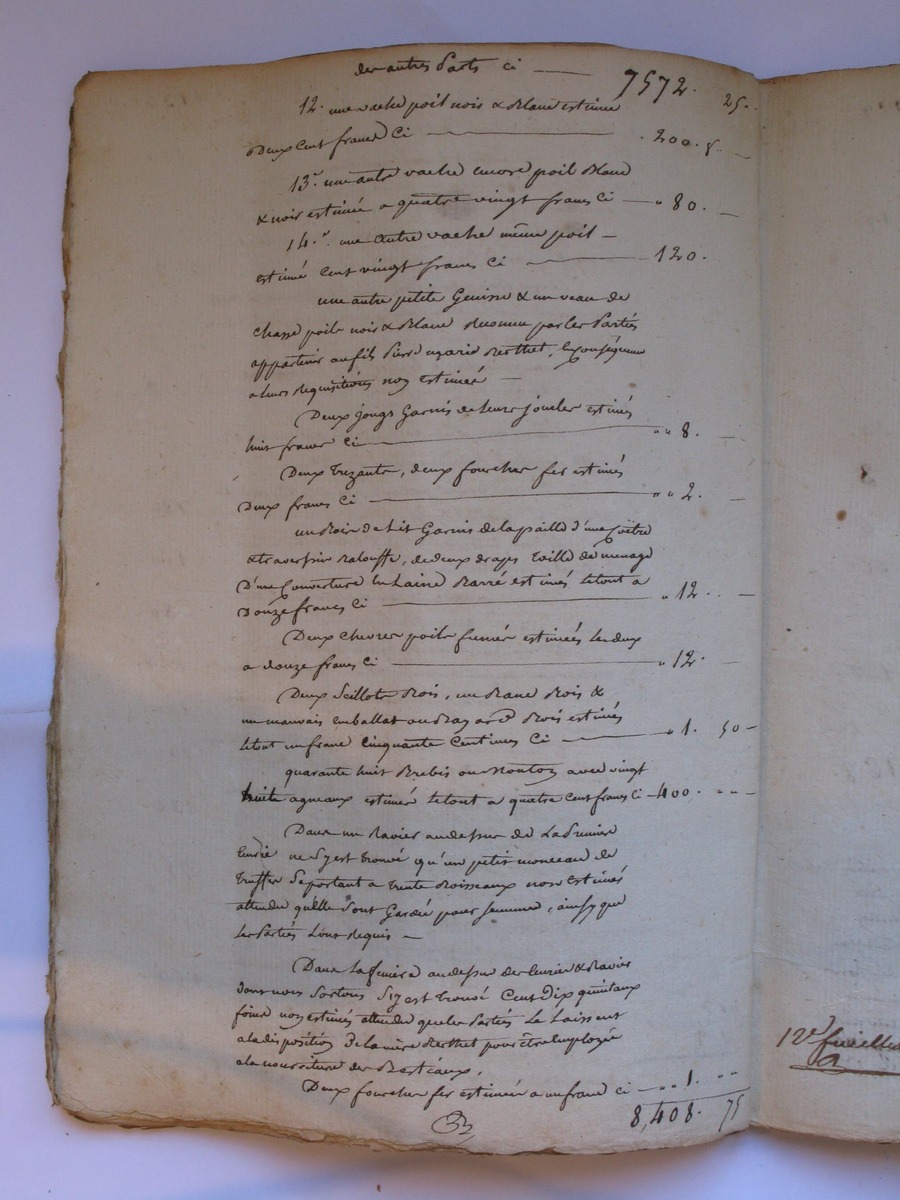 des autres Parts ci — 7572. 25.
12.° une vache poil noir & Blanc estimée
Deux Cent francs Ci — 200. „ —
13.° une autre vache encore poil Blanc
& noir estimée a quatre vingt francs Ci — „ 80. —
14.° une autre vache même poil —
estimé Cent vingt francs Ci — 120.
une autre petite Genisse & un veau de
Chasse poil noir & Blanc reconnu par les Parties
appartenir au fils Pierre marie Berthet, En Conséquence
a leurs requisitions non estimés —
Deux jougs Garnis de leurs joucles estimés
huit francs Ci — „ „ 8. —
Deux trezants, deux fourches fer estimés
Deux francs Ci — „ „ 2. —
un Bois de Lit Garnis de la paille d'une Coëtre
& traversin Balouffe, de deux draps toille de menage
D'une Couverture En Laine Barré estimés letout a
Douze francs Ci — „ 12. . —
Deux Chevres poil fumée estimées les deux
a douze francs Ci — „ 12. —
Deux Seillots Bois, un Banc Bois &
un mauvais Emballas ou Bay ard Bois estimés
letout un franc Cinquante Centimes Ci — „ 1. 50 —
quarante huit Brebis ou Moutons avec vingt
huité agneaux estimés letout a quatre Cent francs Ci — 400. „ „ —
Dans un Ravier audessus de La Premiere
Ecurie ne S'y est trouvé qu'un petit monceau de
truffes Se portant a trente Boisseaux non Estimés
attendu qu'elle Sont Gardée pour Semence, ainsy que
les Parties L'ont Requis —
Dans La feniere audessus des Ecurie & Ravier
dont nous Sortons S'y est trouvé Cent Dix quintaux
foins non estimés attendu que les Parties Le Laissent
ala disposition de la mere Berthet pour etre Employée
ala nourriture des Bestiaux.
Deux fourches fer estimées a un franc ci — „ „ 1. „ „
8,408. 75
12.e feuillet